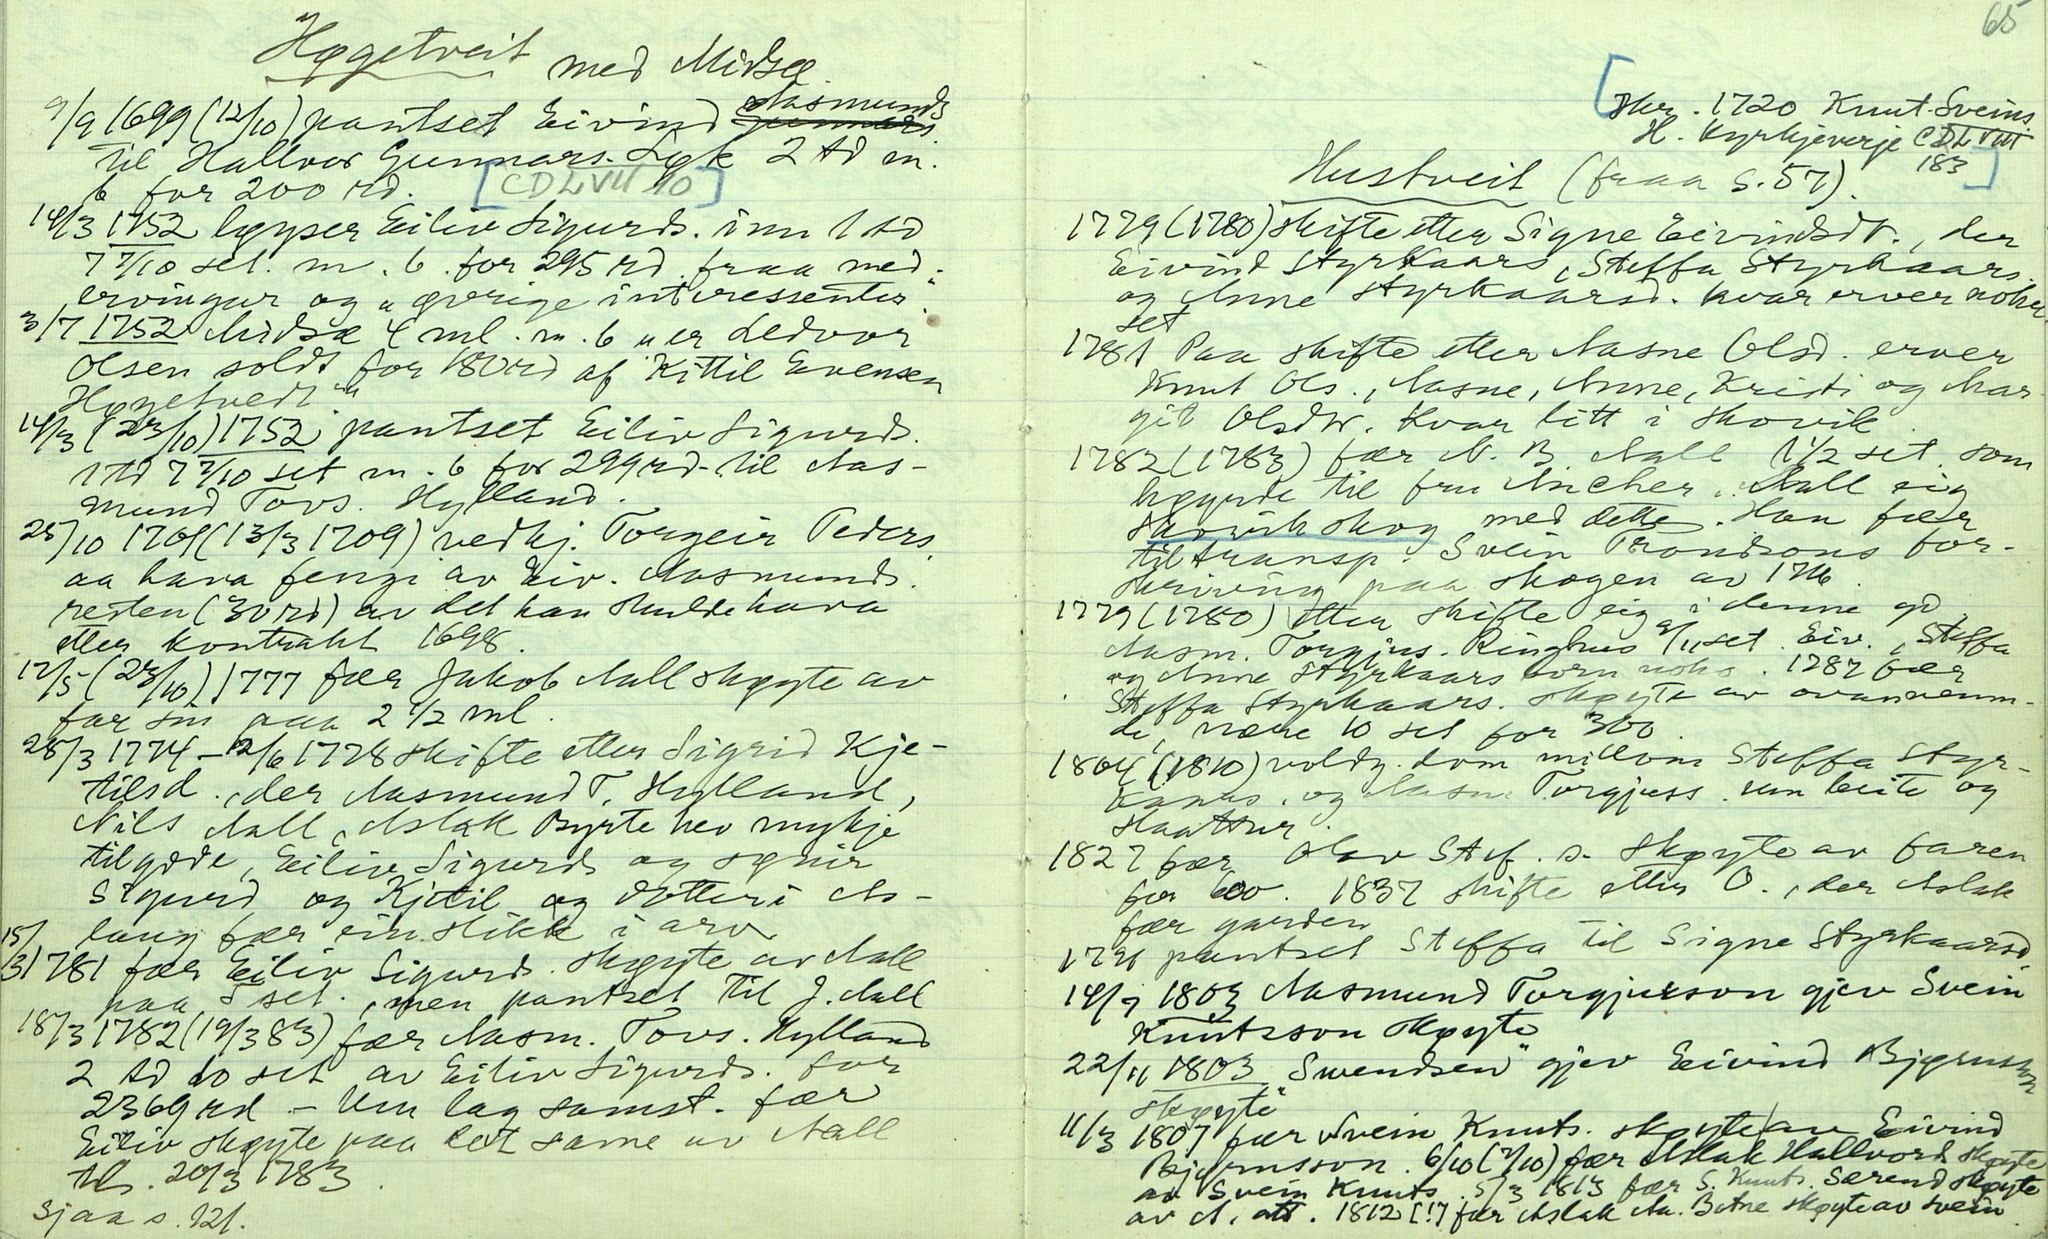 Høgetveit med Midsæ.
9/9 1699 (12/10) pantset Eivind Aasmunds
til Hallvor Gunnars. Løk 2 td m.
b for 200 rd. [CDLVII 10]
14/3 1752 løyser Eiliv Sigurds. inn 1 td
7 7/10 set. m. b. for 295 rd. fraa med-
ervingar og "øvrige interessenter".
3/7 1752 Midsæ 4 ml. m. b "er Ledvor
Olsen soldt for 180 rd af Kittil Evensen
Høgetvedt"
14/3 (23/10) 1752 pantset Eiliv Sigurds.
1 td 7 7/10 set m. b for 299 rd til Aas-
mund Tovs. Hylland.
25/10 1701 (13/3 1709) vedkj. Torgeir Peders.
aa hava fengi av Eiv. Aasmunds.
resten (30 rd) av det han skulde hava
etter kontrakt 1698.
12/5 (23/10) 1777 fær Jakob Aall skøyte av
far sin paa 2 1/2 ml.
28/3 1774 - 12/6 1778 skifte etter Sigrid Kje-
tilsd., der Aasmund T. Hylland,
Nils Aall, Aslak Byrte hev mykje
tilgode, Eiliv Sigurds og sønir
Sigurd og Kjetil og dotteri As-
laug fær ein slikk i arv
15/3 1781 fær Eiliv Sigurds. skøyte av Aall
paa 5 set., men pantset til J. Aall
18/3 1782 (19/3 83) fær Aasm. Tovs. Hylland
2 td 10 set av Eiliv Sigurds. for
2369 rd - Um lag samst. fær
Eiliv skøyte paa det same av Aall
tl. 20/3 1783.
Sjaa s. 121.
65
[Skr. 1720 Knut Sveins
H. kyrkjeverje CDLVIII
183]
Hustveit (fraa s. 57).
1779 (1780) skifte etter Signe Eivindsdt., der
Eivind Styrkaars, Steffa Styrkaars.
og Anne Styrkaarsd. kvar erver nokre
set
1781 Paa skifte etter Aasne Olsd. erver
Knut Ols., Aasne, Anne, Kristi og Mar-
git Olsdtr. kvar litt i Skovik.
1782 (1783) fær N. B. Aall 1 1/2 set. som
høyrde til fru Ancher. Aall eig
Skovik skog med dette. Han fær
til transp. Svein Trondsons for-
skriving paa skogen av 1716.
1779 (1780) etter skifte eig i denne gd
Aasm. Torgjus. Ringhus 9/11 set. Eiv., Steffa
og Anne Styrkaars born noko. 1787 fær
Steffa Styrkaars. skøyte av ovannemn-
de, nære 10 set for 300.
1804 (1810) voldg. dom millom Steffa Styr-
kaars. og Aasm. Torgjuss. um beite og
slaattur.
1827 fær Olav Stef. s. skøyte av faren
for 600. 1837 skifte etter O., der Aslak
fær garden
1796 pantset Steffa til Signe Styrkaarsd
14/7 1803 Aasmund Torgjusson gjev Svein
Knutsson skøyte
22/11 1803 "Swendsen" gjev Eivind Bjørnsson
skøyte
11/3 1807 fær Svein Knuts. skøyte av Eivind
Bjørnsson. 6/10 (7/10) fær Aslak Hallvords skøyte
av Svein Knuts. 5/3 1813 fær S. Knuts. Særend skøyte
av A. att. 1812 [!] fær Aslak Aa. Botne skøyte av Svein